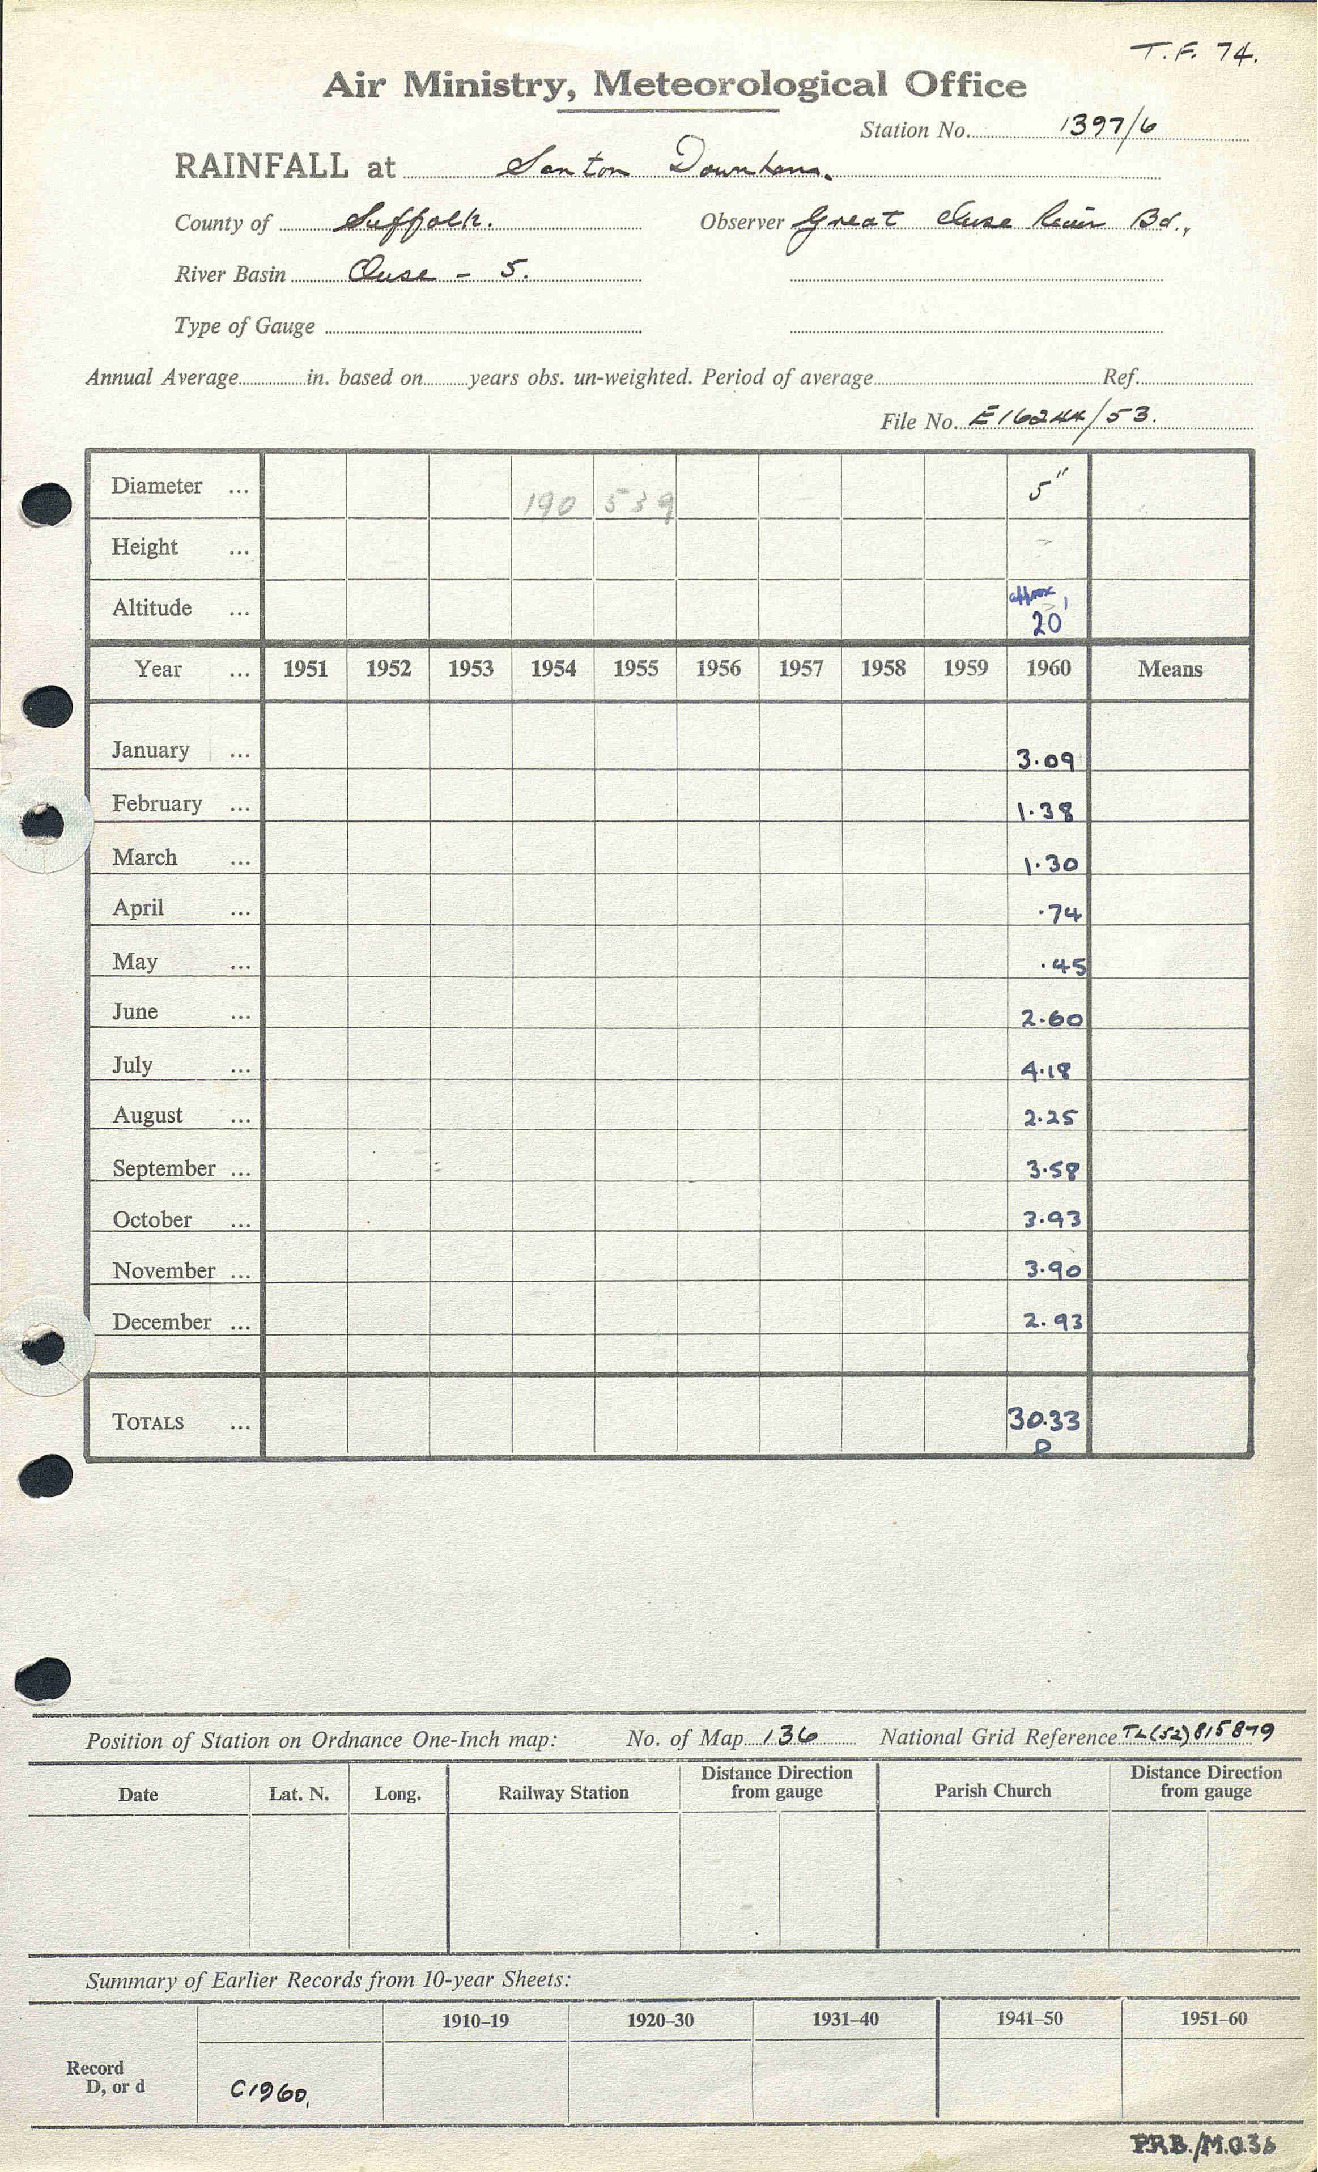 T.F. 74.
Air Ministry, Meteorological Office
Station No. 1397/6
RAINFALL at Santon Downham.
County of Suffolk. Observer Great Ouse River Bd.,
River Basin Ouse - 5.
Type of Gauge
Annual Average in. based on years obs. un-weighted. Period of average Ref.
File No. E16244/53.
Diameter ... 190 539 5"
Height ... -
Altitude ... approx 20'
Year ... 1951 1952 1953 1954 1955 1956 1957 1958 1959 1960 Means
January ... 3.09
February ... 1.38
March ... 1.30
April ... .74
May ... .45
June ... 2.60
July ... 4.18
August ... 2.25
September ... 3.58
October ... 3.93
November ... 3.90
December ... 2.93
TOTALS ... 30.33
D
Position of Station on Ordnance One-Inch map: No. of Map 136 National Grid Reference TL(52)815879
Date Lat. N. Long. Railway Station Distance Direction from gauge Parish Church Distance Direction from gauge
Summary of Earlier Records from 10-year Sheets:
1910-19 1920-30 1931-40 1941-50 1951-60
Record
D, or d C1960,
P.R.B./M.O.36